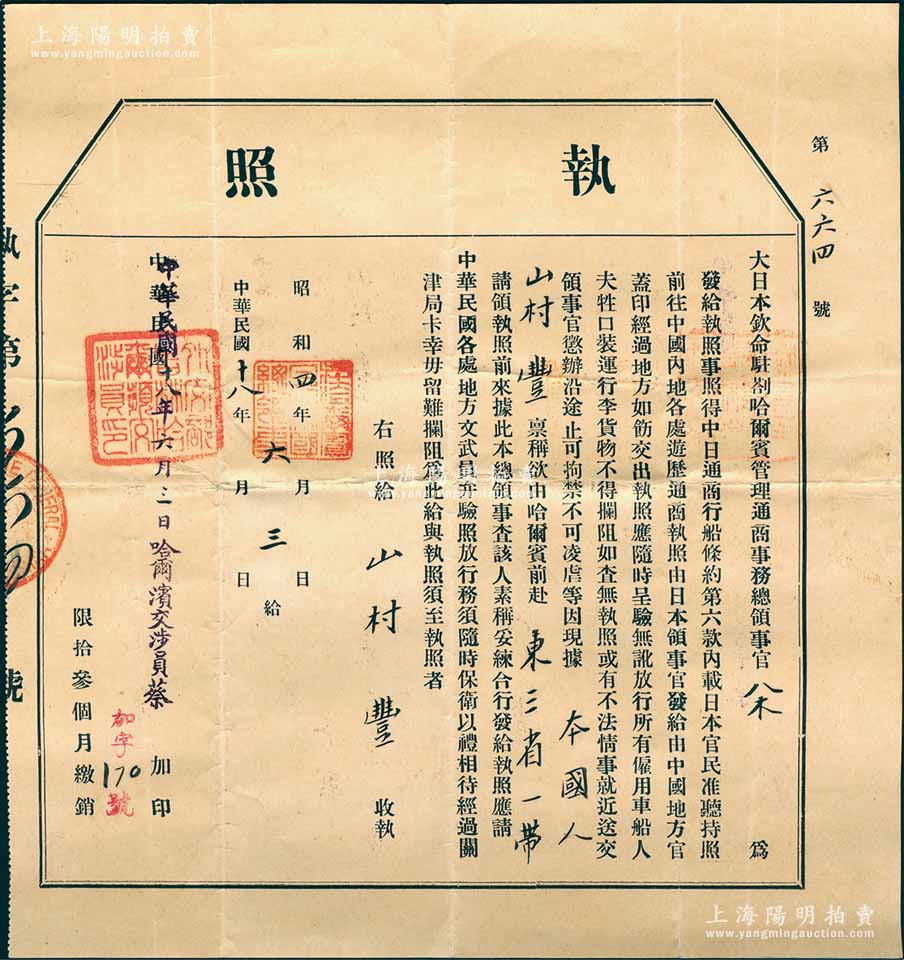 上海陽明拍賣
www.yangmingauction.com
第六六四號
執照
大日本欽命駐劄哈爾賓管理通商事務總領事官 八木 為
發給執照事照得中日通商行船條約第六款內載日本官民准聽持照
前往中國內地各處遊歷通商執照由日本領事官發給由中國地方官
蓋印經過地方如飭交出執照應隨時呈驗無訛放行所有僱用車船人
夫牲口裝運行李貨物不得攔阻如查無執照或有不法情事就近送交
領事官懲辦沿途止可拘禁不可凌虐等因現據 本國人
山村豐 稟稱欲由哈爾賓前赴 東三省一帶
請領執照前來據此本總領事查該人素稱妥練合行發給執照應請
中華民國各處地方文武員弁驗照放行務須隨時保衛以禮相待經過關
津局卡幸毋留難攔阻為此給與執照須至執照者
右照給 山村豐 收執
昭和四年六月三日給
中華民國十八年 月 日
中華民國
中華民國十八年六月三日哈爾濱交涉員蔡 加印
加字170號
限拾參個月繳銷
執字第 號
上海陽明拍賣
www.yangmingauction.com
上海陽明拍賣
www.yangmingauction.com